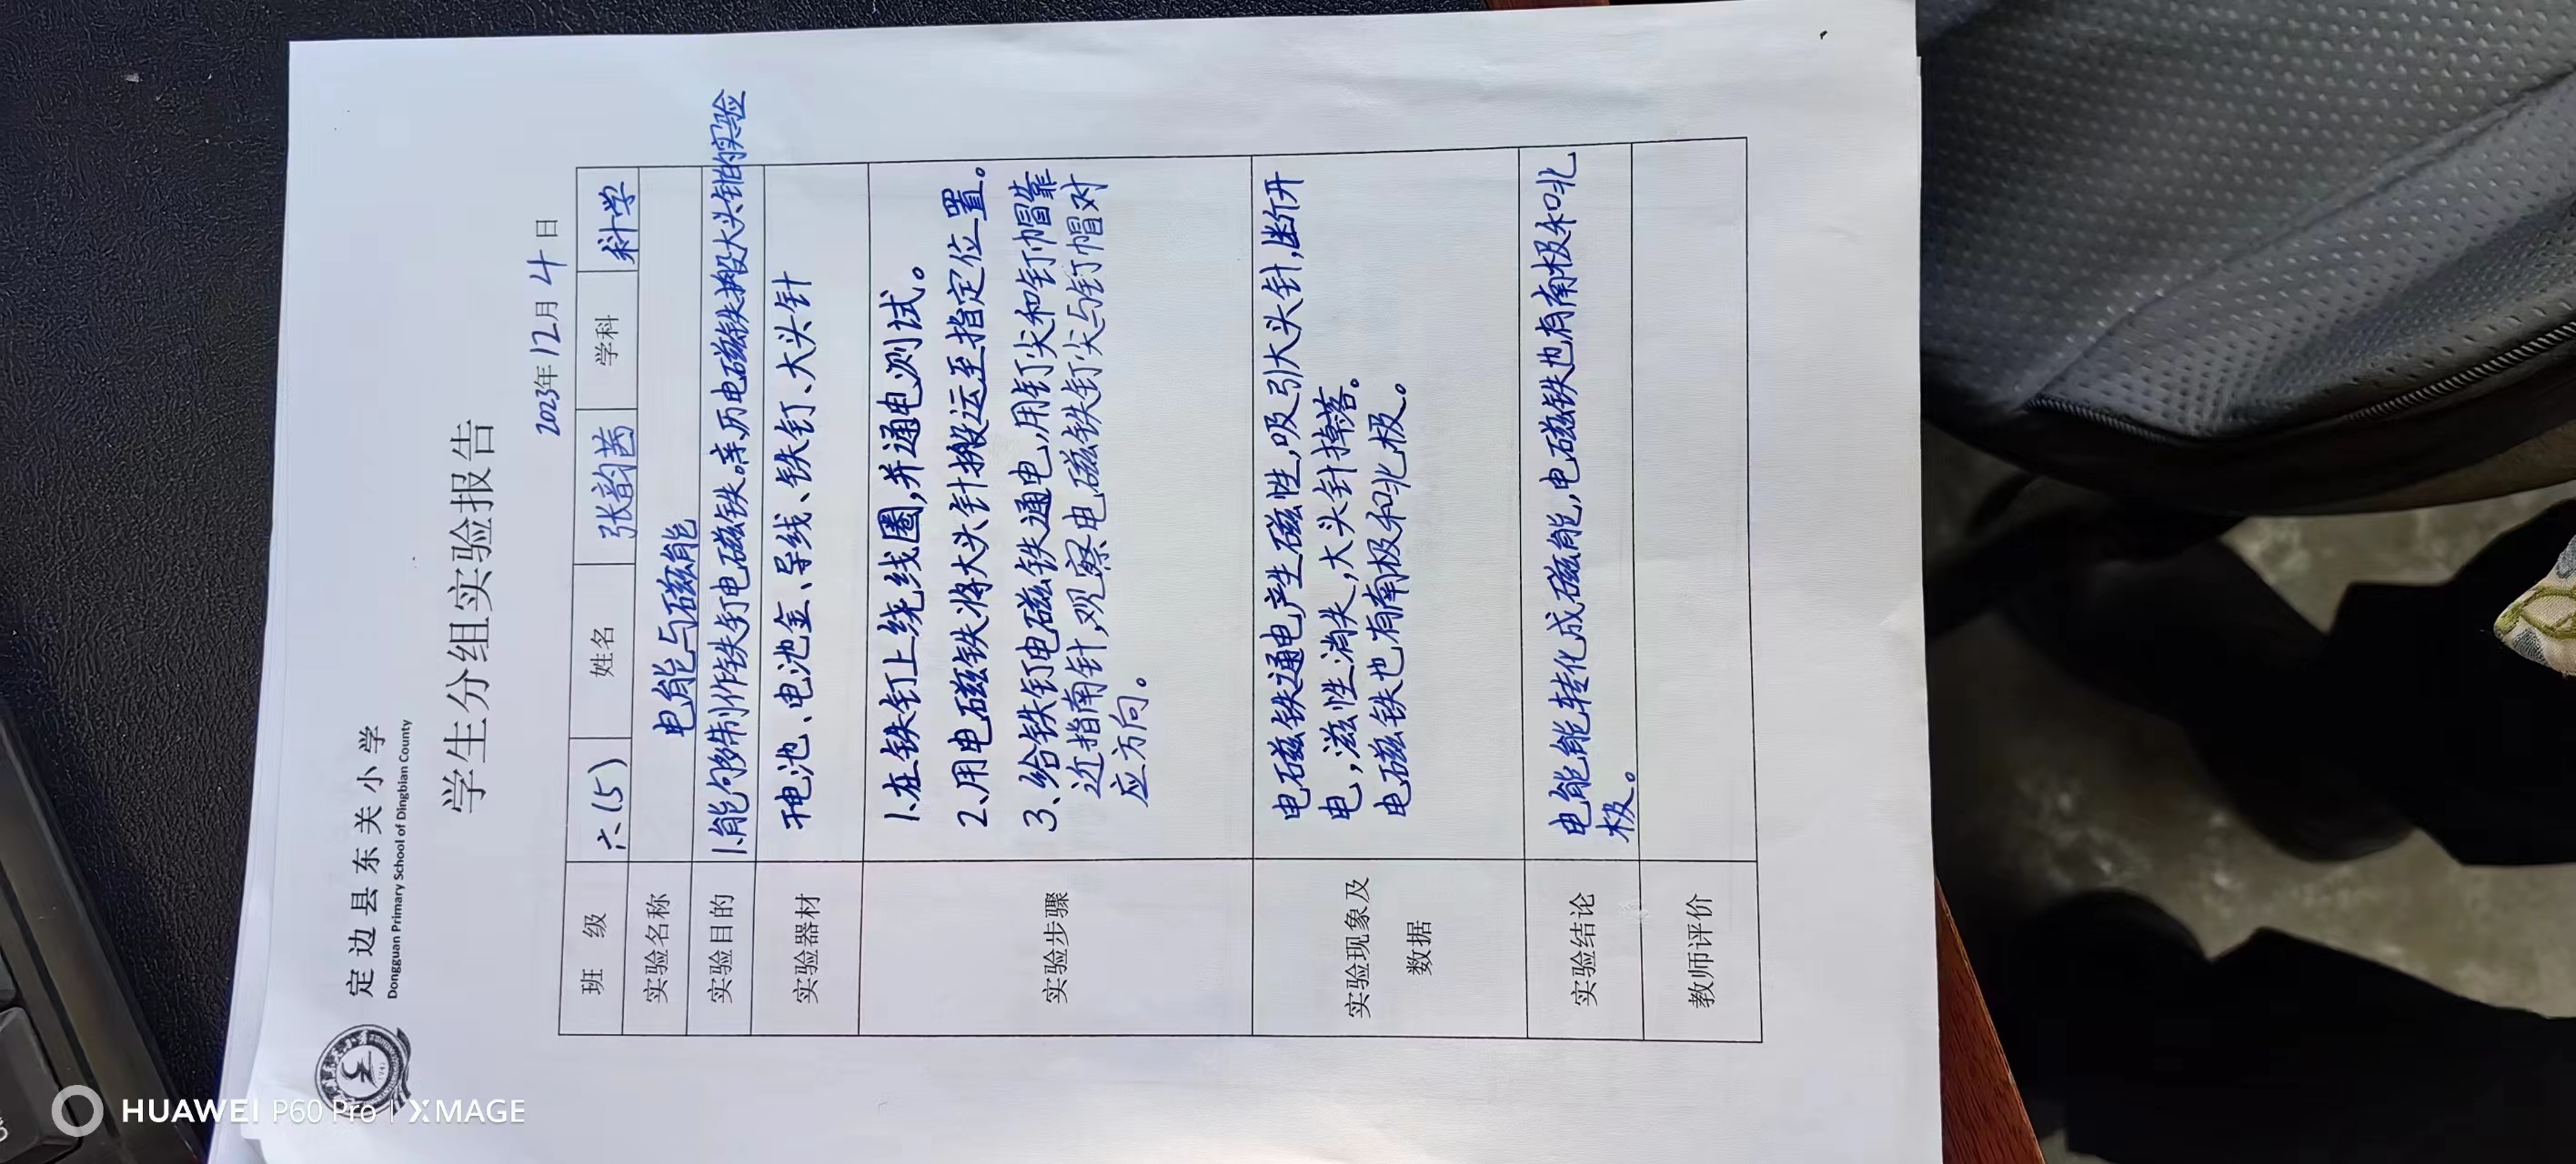 定边县东关小学
Dongguan Primary School of Dingbian County
学生分组实验报告
2023年12月4日
班级 六(5) 姓名 张韵茜 学科 科学
实验名称 电能与磁能
实验目的 1.能够制作铁钉电磁铁。亲历电磁铁搬大头针的实验
实验器材 干电池、电池盒、导线、铁钉、大头针
实验步骤
1、在铁钉上绕线圈,并通电测试。
2、用电磁铁将大头针搬运至指定位置。
3、给铁钉电磁铁通电,用钉尖和钉帽靠
近指南针,观察电磁铁钉尖与钉帽对
应方向。
实验现象及
数据
电磁铁通电产生磁性,吸引大头针,断开
电,滋性消失,大头针掉落。
电磁铁也有南极和北极。
实验结论
电能能转化成磁能,电磁铁也有南极和北
极。
教师评价
HUAWEI P60 Pro | XMAGE